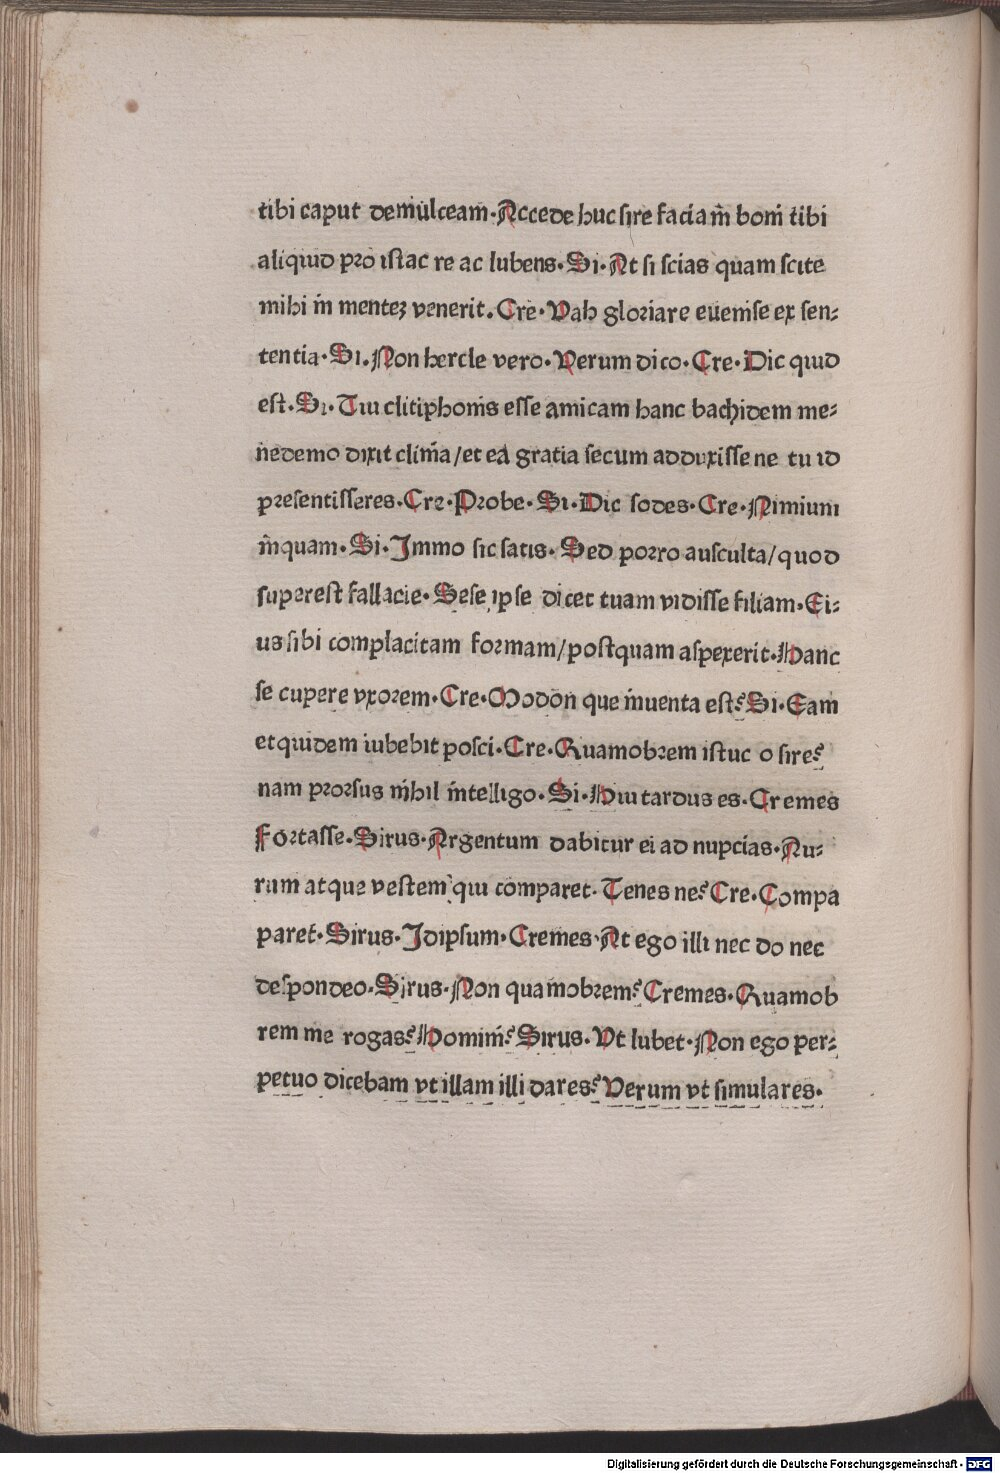 tibi caput demulceam·Accede huc sire faciam boni tibi
aliquid pro istac re ac lubens·Si·At si scias quam scite
mihi in mentez venerit·Cre·Vah gloriare euenise ex sen⸗
tentia·Si·Non hercle vero·Verum dico·Cre·Dic quid
est·Si·Tui clitiphonis esse amicam hanc bachidem me⸗
nedemo dixit clinia/et ea gratia secum adduxisse ne tu id
presentisseres·Cre·Probe·Si·Dic sodes·Cre·Nimium
inquam·Si·Immo sic satis·Sed porro ausculta/quod
superest fallacie·Sese ipse dicet tuam vidisse filiam·Ei⸗
us sibi complacitam formam/postquam aspexerit·Hanc
se cupere vxorem·Cre·Modon que inuenta est?Si·Eam
et quidem iubebit posci·Cre·Quamobrem istuc o sire?
nam prorsus nihil intelligo·Si·Hui tardus es·Cremes
Fortasse·Sirus·Argentum dabitur ei ad nupcias·Au⸗
rum atque vestem qui comparet·Tenes ne?Cre·Compa
paret·Sirus·Idipsum·Cremes·At ego illi nec do nec
despondeo·Sirus·Non quamobrem?Cremes·Quamob
rem me rogas?Homini?Sirus·Vt lubet·Non ego per⸗
petuo dicebam vt illam illi dares?Verum vt simulares·
Digitalisierung gefördert durch die Deutsche Forschungsgemeinschaft - DFG